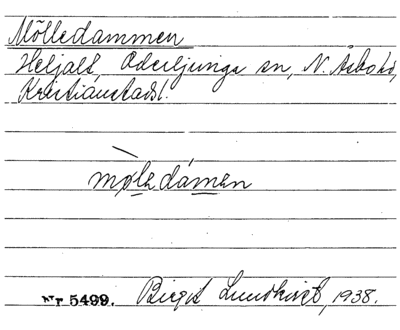 Mölledammen
Heljalt, Oderljunga sn, N. Åsbo hd,
Kristianstads l.
møle dámen
Nr 5499. Birgit Lundkvist, 1938.